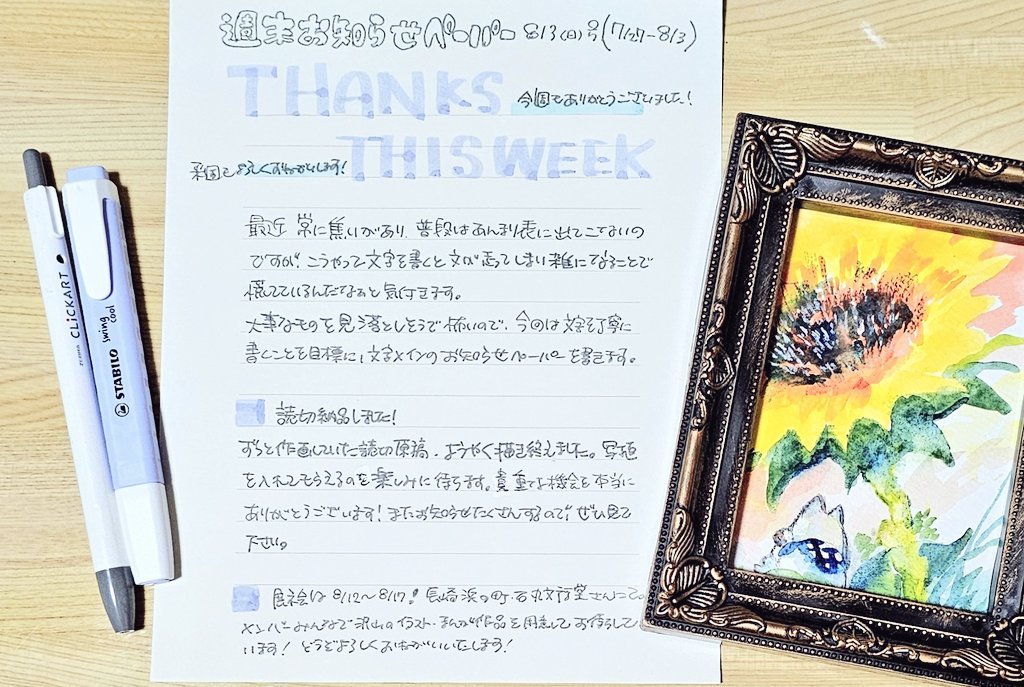 週末お知らせペーパー 8/3(日)号(7/27-8/3)
THANKS
今週もありがとうございました!
THIS WEEK
来週もよろしくおねがいします!
最近 常に焦りがあり、普段はあんまり表に出てこないの
ですが、こうやって文字を書くと文が走ってしまい雑になることで
慌てているんだなぁと気付きます。
大事なものを見落としそうで怖いので、今回は文字を丁寧に
書くことを目標に、文字メインのお知らせペーパーを書きます。
読切納品しました!
ずっと作画していた読切原稿、ようやく描き終えました。写植
を入れてもらえるのを楽しみに待ちます。貴重な機会を本当に
ありがとうございます!またお知らせたくさんするので、ぜひ見て
下さい。
展絵は 8/12〜8/17! 長崎浜の町・石丸文行堂さんにて。
メンバーみんなで沢山のイラスト・まんが作品を用意してお待ちして
います! どうぞよろしくおねがいいたします!
ZEBRA CLiCKART
STABILO swing cool